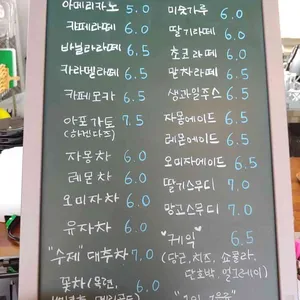 아메리카노 5.0
카페라떼 6.0
바닐라라떼 6.5
카라멜라떼 6.5
카페모카 6.5
아포가토 7.5
(하겐다즈)
자몽차 6.0
레몬차 6.0
오미자차 6.0
유자차 6.0
"수제" 대추차 7.0
꽃차(목련,
미숫가루 6.0
딸기라떼 6.0
초코라떼 6.0
말차라떼 6.5
생과일주스 6.5
자몽에이드 6.5
레몬에이드 6.5
오미자에이드 6.5
딸기스무디 7.0
망고스무디 7.0
"케익" 6.5
(당근, 치즈, 쇼콜라,
단호박, 얼그레이)